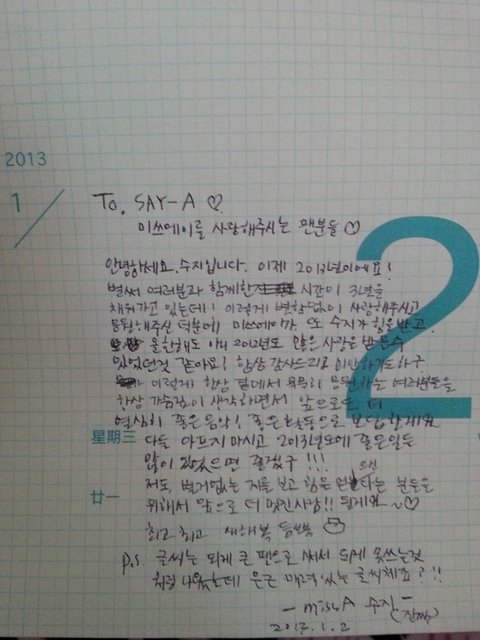 2013
1/
2
To. SAY-A ♡
미쓰에이를 사랑해주시는 팬분들 ♡
안녕하세요. 수지입니다. 이제 2013년이에요!
벌써 여러분과 함께한 시간이 3년을
채워가고 있는데! 이렇게 변함없이 사랑해주시고
응원해주신 덕분에 미쓰에이가 또 수지가 힘을 받고
올한해도 아니 2012년도 많은 사랑을 받을수
있었던것 같아요! 항상 감사드리고 미안하기도하구
이렇게 항상 곁에서 묵묵히 응원하는 여러분들을
항상 생각하면서 앞으로도 더
열심히 좋은음악! 좋은활동으로 보답할게요
星期三
다들 아프지마시고 2013년도에 좋은일들
많이 있었으면 좋겠구!!!
廿一
저도 별거없는 저를 보고 힘을 얻으신다는 분들을
위해서 앞으로 더 멋진사람!! 될게요~♡
최고최고 새해복 듬뿍
p.s. 글씨는 되게 큰 펜으로 써서 되게 못쓰는것
처럼 나왔는데 은근 매력있는 글씨체죠?!!
- missA 수지 -
2013.1.2